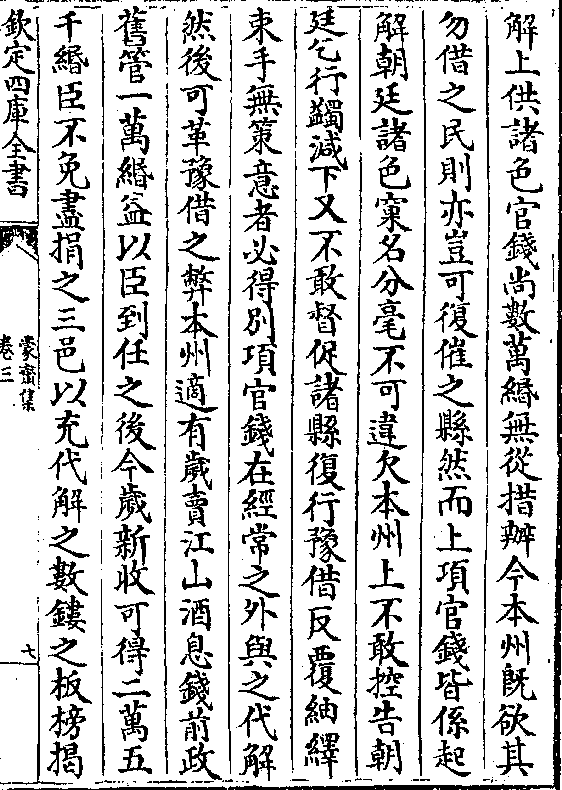 解上供諸色官錢尚數萬緡無從措辦今本州既欲其
勿借之民則亦豈可復催之縣然而上項官錢皆係起
解朝廷諸色窠名分毫不可違欠本州上不敢控告朝
廷乞行蠲減下又不敢督促諸縣復行豫借反覆紬繹
束手無策意者必得別項官錢在經常之外與之代解
然後可革豫借之弊本州適有歲賣江山酒息錢前政
舊管一萬緡益以臣到任之後今歲新收可得二萬五
千緡臣不免盡捐之三邑以充代解之數鏤之板榜揭
欽定四庫全書
蒙齋集
卷三
七